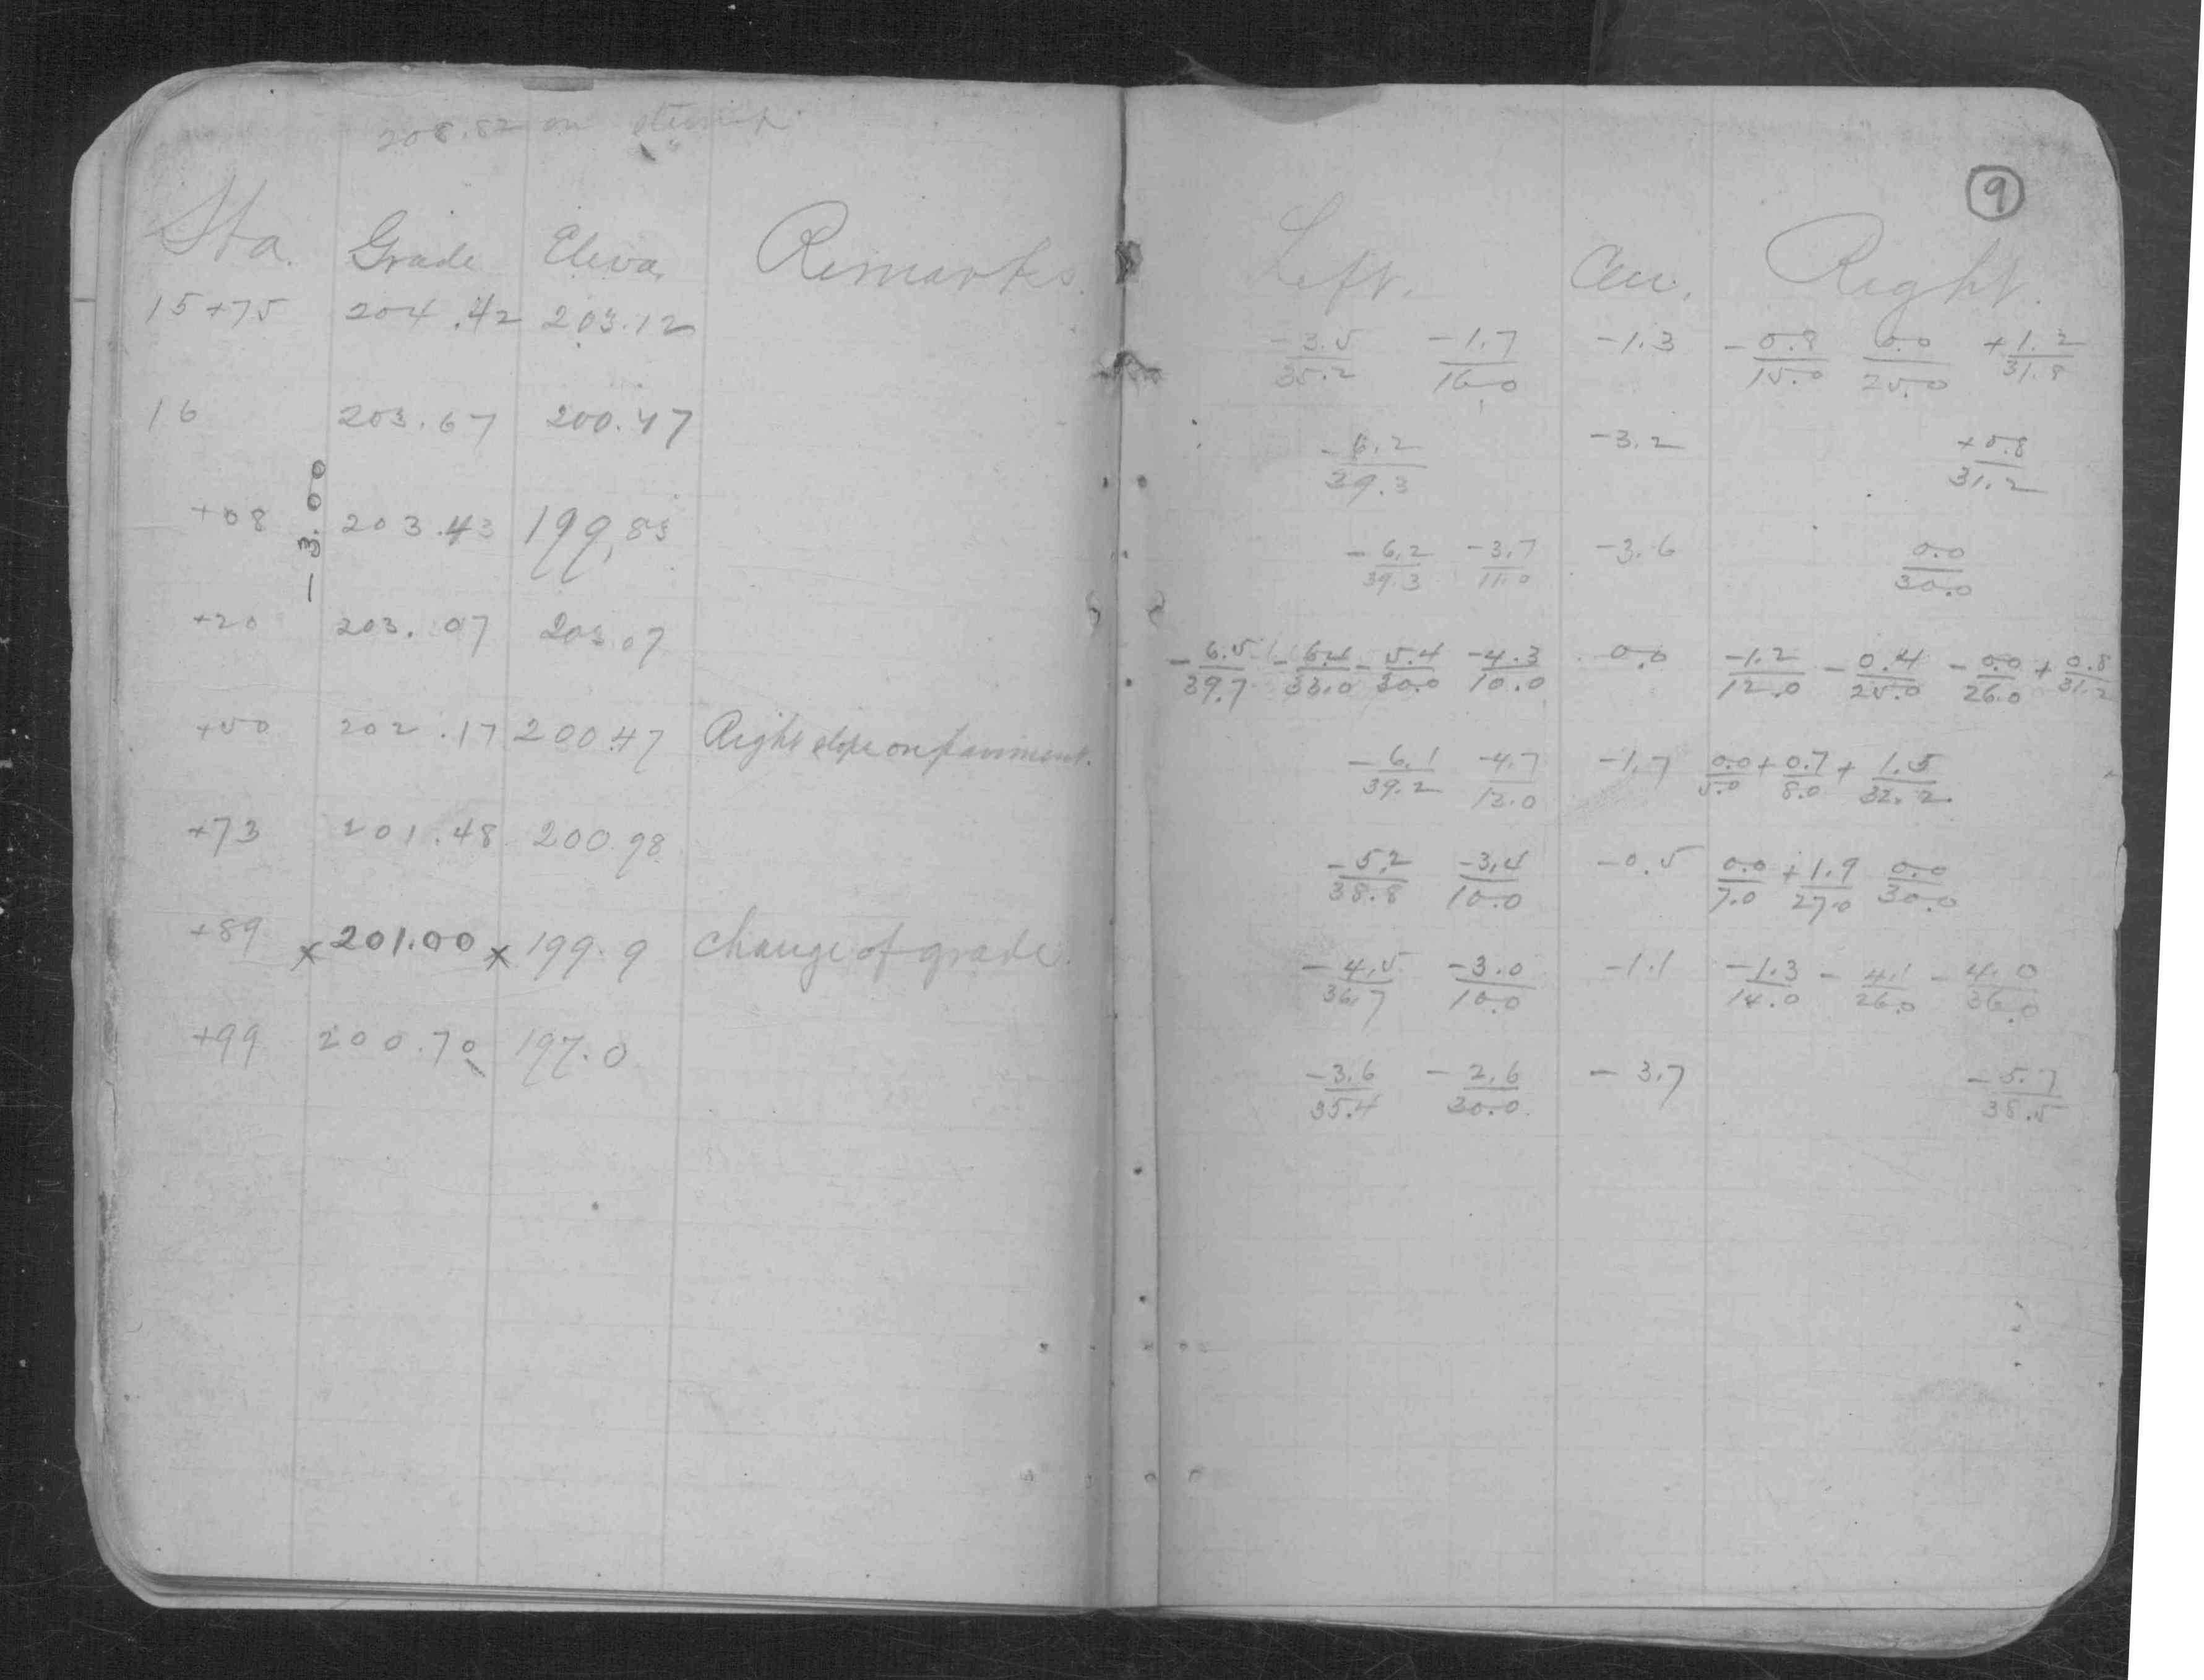 208.82 on stump
Sta. Grade Eleva. Remarks.
15+75 204.42 203.12
16 203.67 200.47
-3.00
+08 203.43 199.83
+20 203.07 203.07
+50 202.17 200.47 Right slope on pavement.
+73 201.48 200.98
+89 x 201.00 x 199.9 Change of grade.
+99 200.70 197.0
9
Left. Cen. Right.
-3.5/35.2 -1.7/16.0 -1.3 -0.8/15.0 0.0/25.0 +1.2/31.8
-6.2/39.3 -3.2 +0.8/31.2
-6.2/39.3 -3.7/11.0 -3.6 0.0/30.0
-6.5/39.7 -6.4/33.0 -5.4/30.0 -4.3/10.0 0.0 -1.2/12.0 -0.4/25.0 -0.0/26.0 +0.8/31.2
-6.1/39.2 -4.7/12.0 -1.7 0.0/5.0 +0.7/8.0 +1.5/32.2
-5.2/38.8 -3.4/10.0 -0.5 0.0/7.0 +1.9/27.0 0.0/30.0
-4.5/36.7 -3.0/10.0 -1.1 -1.3/14.0 -4.1/26.0 -4.0/36.0
-3.6/35.4 -2.6/30.0 -3.7 -5.7/38.5